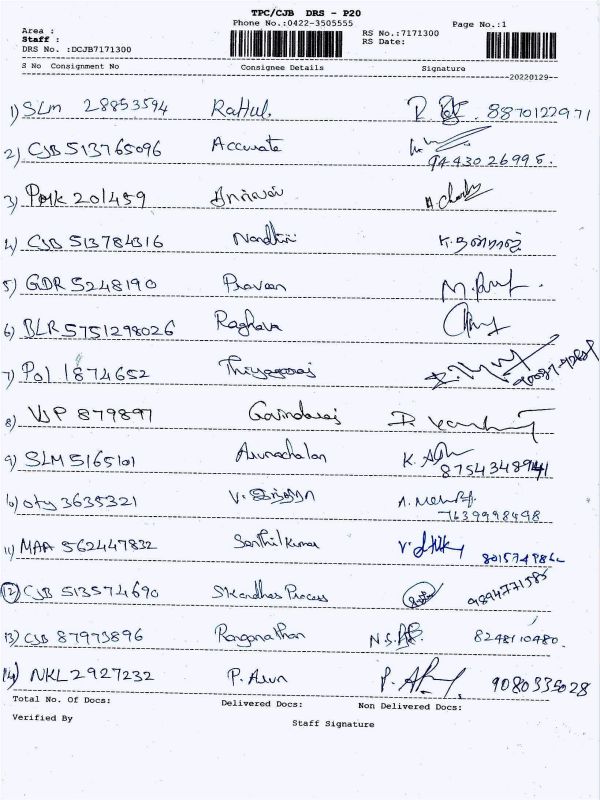 TPC/CJB DRS - P20
Phone No.:0422-3505555 Page No.:1
Area :
Staff : RS No.:7171300
DRS No. :DCJB7171300 RS Date:
S No Consignment No Consignee Details Signature
20220129
1) SLM 28853594 Rahul. 8870122971
2) CJB 513765096 Accurate
9443026995.
3) PMK 201459
4) CJB 513784316 Nandhini
5) GDR 5248190 Praveen
6) BLR 5751298026 Raghava
7) POI 1874652 Thiyagaraj
8) VJP 879897 Govindaraj
9) SLM 5165101 Arunachalan
8754348941
10) Oty 3635321
7639998498
11) MAA 562447832 Senthil Kumar
12) CJB 513574690 Skandhas Process 9894771585
13) CJB 87973896 Ranganathan 8248110480.
14) NKL 2927232 P. Arun 9080335028
Total No. Of Docs: Delivered Docs: Non Delivered Docs:
Verified By Staff Signature